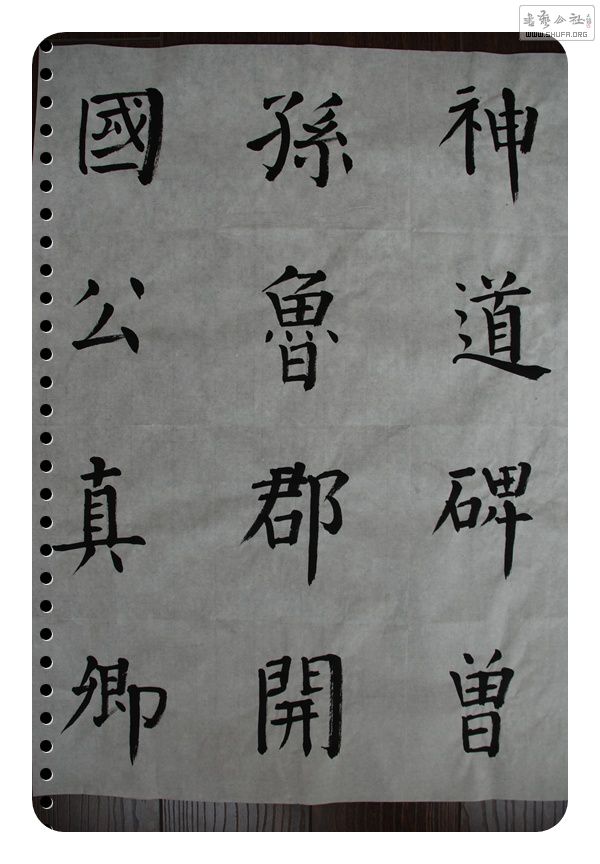 神道碑曽
孫魯郡開
國公真卿
書藝公社
WWW.SHUFA.ORG